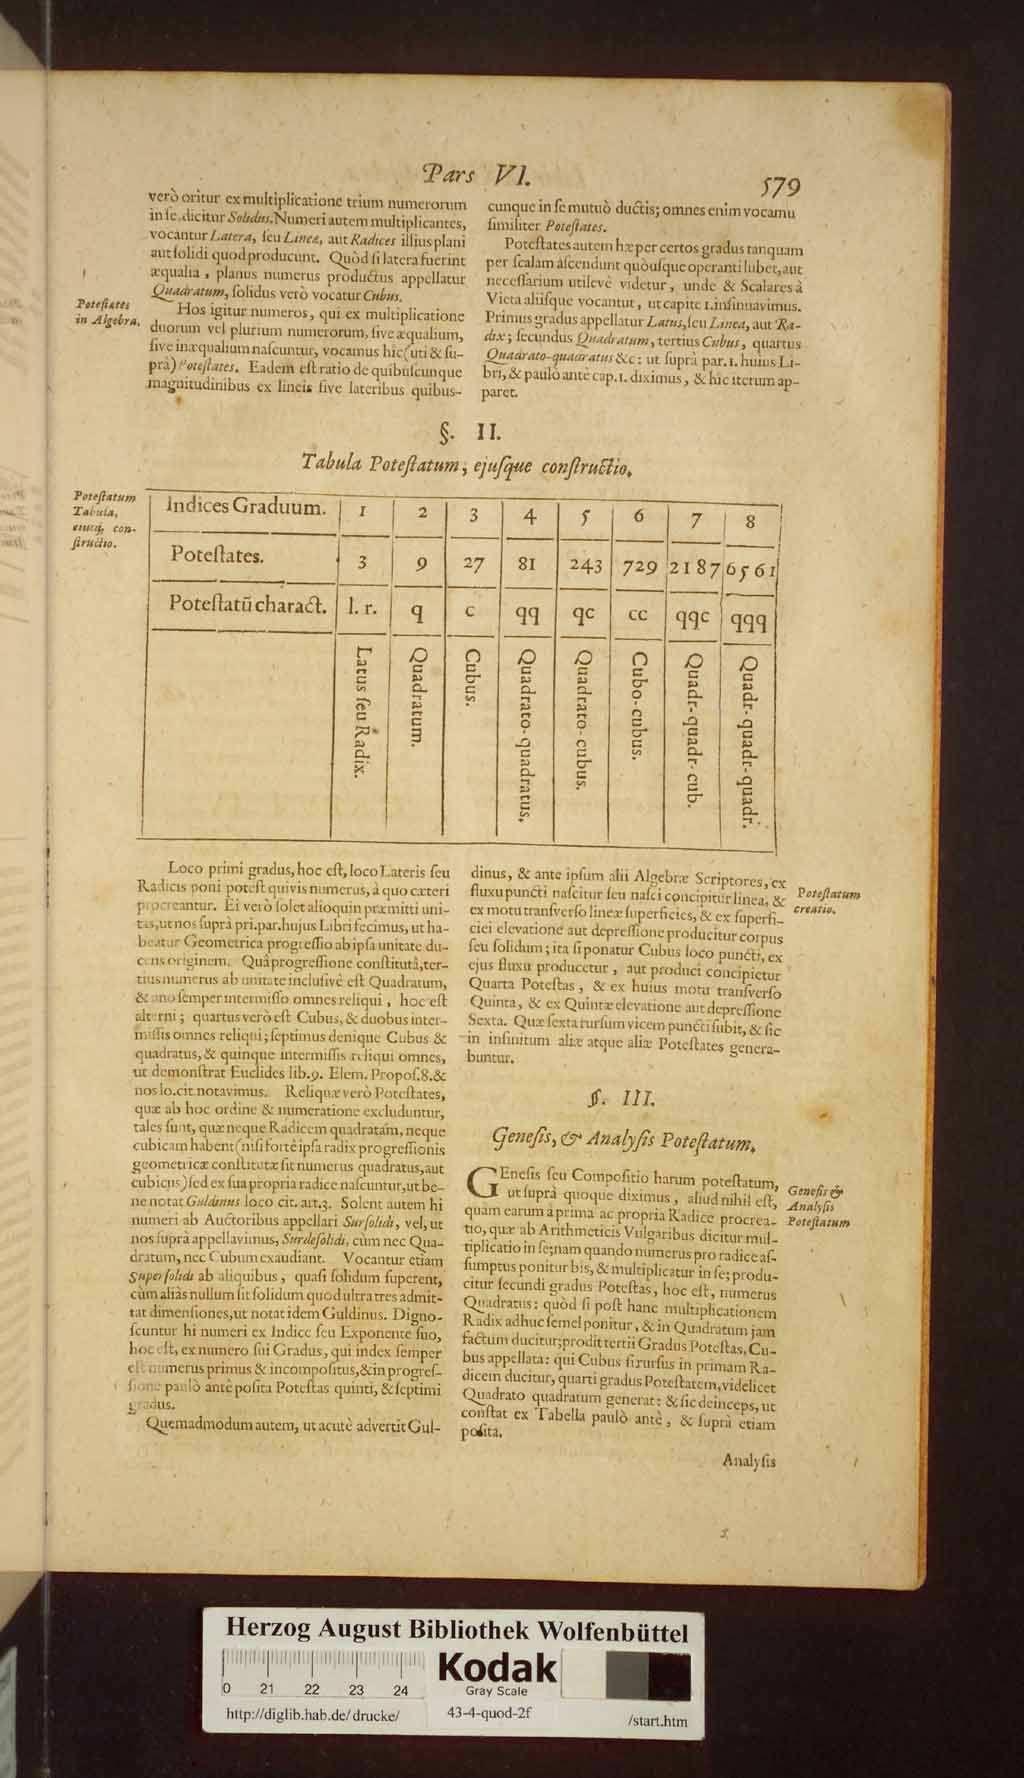 Pars VI.
579
verò oritur ex multiplicatione trium numerorum
in se, dicitur Solidus. Numeri autem multiplicantes,
vocantur Latera, seu Lineæ, aut Radices illius plani
aut solidi quod producunt. Quòd si latera fuerint
æqualia, planus numerus productus appellatur
Quadratum, solidus verò vocatur Cubus.
Potestates
in Algebra.
Hos igitur numeros, qui ex multiplicatione
duorum vel plurium numerorum, sive æqualium,
sive inæqualium nascuntur, vocamus hic (uti & su-
prà) Potestates. Eadem est ratio de quibuscunque
magnitudinibus ex lineis sive lateribus quibus-
cunque in se mutuò ductis; omnes enim vocamu
similiter Potestates.
Potestates autem hæ per certos gradus tanquam
per scalam ascendunt quòusque operanti lubet, aut
necessarium utilevè videtur, unde & Scalares à
Vieta aliisque vocantur, ut capite 1. insinuavimus.
Primus gradus appellatur Latus, seu Linea, aut Ra-
dix; secundus Quadratum, tertius Cubus, quartus
Quadrato-quadratus &c: ut suprà par. 1. huius Li-
bri, & paulò antè cap. 1. diximus, & hic iterum ap-
paret.
§. II.
Tabula Potestatum, ejusque constructio.
Potestatum
Tabula,
eiusq; con-
structio.
Indices Graduum. 1 2 3 4 5 6 7 8
Potestates. 3 9 27 81 243 729 2187 6561
Potestatũ charact. l. r. q c qq qc cc qqc qqq
Latus seu Radix.
Quadratum.
Cubus.
Quadrato-quadratus.
Quadrato-cubus.
Cubo-cubus.
Quadr-quadr-cub.
Quadr-quadr-quadr.
Loco primi gradus, hoc est, loco Lateris seu
Radicis poni potest quivis numerus, à quo cæteri
procreantur. Ei verò solet alioquin præmitti uni-
tas, ut nos suprà pri. par. hujus Libri fecimus, ut ha-
beatur Geometrica progressio ab ipsa unitate du-
cens originem. Quâ progressione constitutâ, ter-
tius numerus ab unitate inclusivè est Quadratum,
& uno semper intermisso omnes reliqui, hoc est
alterni; quartus verò est Cubus, & duobus inter-
missis omnes reliqui; septimus denique Cubus &
quadratus, & quinque intermissis reliqui omnes,
ut demonstrat Euclides lib. 9. Elem. Propos. 8. &
nos lo. cit. notavimus. Reliquæ verò Potestates,
quæ ab hoc ordine & numeratione excluduntur,
tales sunt, quæ neque Radicem quadratam, neque
cubicam habent (nisi fortè ipsa radix progressionis
geometricæ constitutæ sit numerus quadratus, aut
cubicus) sed ex sua propria radice nascuntur, ut be-
ne notat Guldinus loco cit. art. 3. Solent autem hi
numeri ab Auctoribus appellari Sursolidi, vel, ut
nos suprà appellavimus, Surdesolidi, cùm nec Qua-
dratum, nec Cubum exaudiant. Vocantur etiam
Supersolidi ab aliquibus, quasi solidum superent,
cùm aliàs nullum sit solidum quod ultra tres admit-
tat dimensiones, ut notat idem Guldinus. Digno-
scuntur hi numeri ex Indice seu Exponente suo,
hoc est, ex numero sui Gradus, qui index semper
est numerus primus & incompositus, & in progres-
sione paulò antè posita Potestas quinti, & septimi
gradus.
Quemadmodum autem, ut acutè advertit Gul-
dinus, & ante ipsum alii Algebræ Scriptores, ex
fluxu puncti nascitur seu nasci concipitur linea, &
ex motu transverso lineæ superficies, & ex superfi-
ciei elevatione aut depressione producitur corpus
seu solidum; ita si ponatur Cubus loco puncti, ex
ejus fluxu producetur, aut produci concipietur
Quarta Potestas, & ex huius motu transverso
Quinta, & ex Quintæ elevatione aut depressione
Sexta. Quæ sexta rursum vicem puncti subit, & sic
in infinitum aliæ atque aliæ Potestates genera-
buntur.
Potestatum
creatio.
§. III.
Genesis, & Analysis Potestatum.
GEnesis seu Compositio harum potestatum,
ut suprà quoque diximus, aliud nihil est,
quàm earum à prima ac propria Radice procrea-
tio, quæ ab Arithmeticis Vulgaribus dicitur mul-
tiplicatio in se; nam quando numerus pro radice as-
sumptus ponitur bis, & multiplicatur in se; produ-
citur secundi gradus Potestas, hoc est, numerus
Quadratus: quòd si post hanc multiplicationem
Radix adhuc semel ponitur, & in Quadratum jam
factum ducitur; prodit tertii Gradus Potestas, Cu-
bus appellata: qui Cubus si rursus in primam Ra-
dicem ducitur, quarti gradus Potestatem, videlicet
Quadrato quadratum generat: & sic deinceps, ut
constat ex Tabella paulò antè, & suprà etiam
posita.
Genesis &
Analysis
Potestatum
Analysis
Herzog August Bibliothek Wolfenbüttel
Kodak
Gray Scale
0 21 22 23 24
http://diglib.hab.de/drucke/
43-4-quod-2f
/start.htm